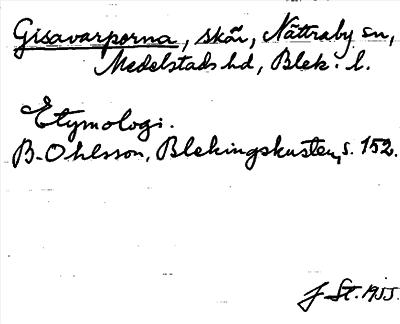 Gisavarporna, skär, Nättraby sn,
Medelstads hd, Blek. l.
Etymologi.
B. Ohlsson, Blekingskusten, s. 152.
J St. 1955.